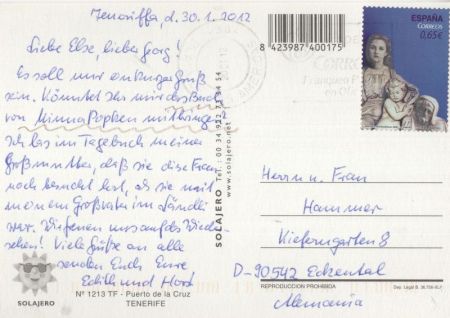 Teneriffa d. 30.1.2012
Liebe Else, lieber Georg!
Es soll nur ein kurzer Gruß
sein. Könntet Ihr mir das Buch
von Minna Popken mitbringen?
Ich las im Tagebuch meiner
Großmutter, daß sie diese Frau
noch besucht hat, als sie mit
meinem Großvater im Ländli
war. Wir freuen uns aufs Wieder-
sehen! Viele Grüße an alle
senden Euch Eure
Edith und Horst
SOLAJERO
Nº 1213 TF - Puerto de la Cruz
TENERIFE
SOLAJERO Tel.: 00 34 922 73 54 54
www.solajero.net
8 423987 400175
ESPAÑA
CORREOS
0,65€
Herrn u. Frau
Hammer
Kieferngarten 8
D-90542 Eckental
Alemania
REPRODUCCION PROHIBIDA